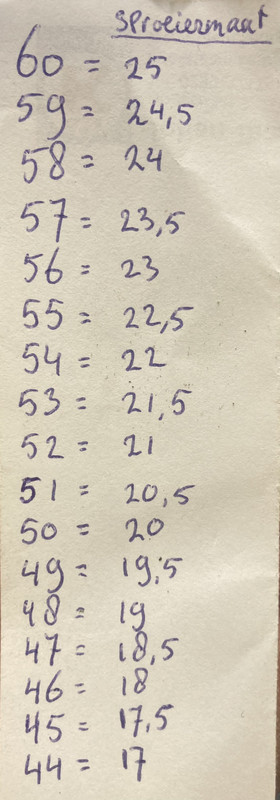 Sproeiermaat
60 = 25
59 = 24,5
58 = 24
57 = 23,5
56 = 23
55 = 22,5
54 = 22
53 = 21,5
52 = 21
51 = 20,5
50 = 20
49 = 19,5
48 = 19
47 = 18,5
46 = 18
45 = 17,5
44 = 17